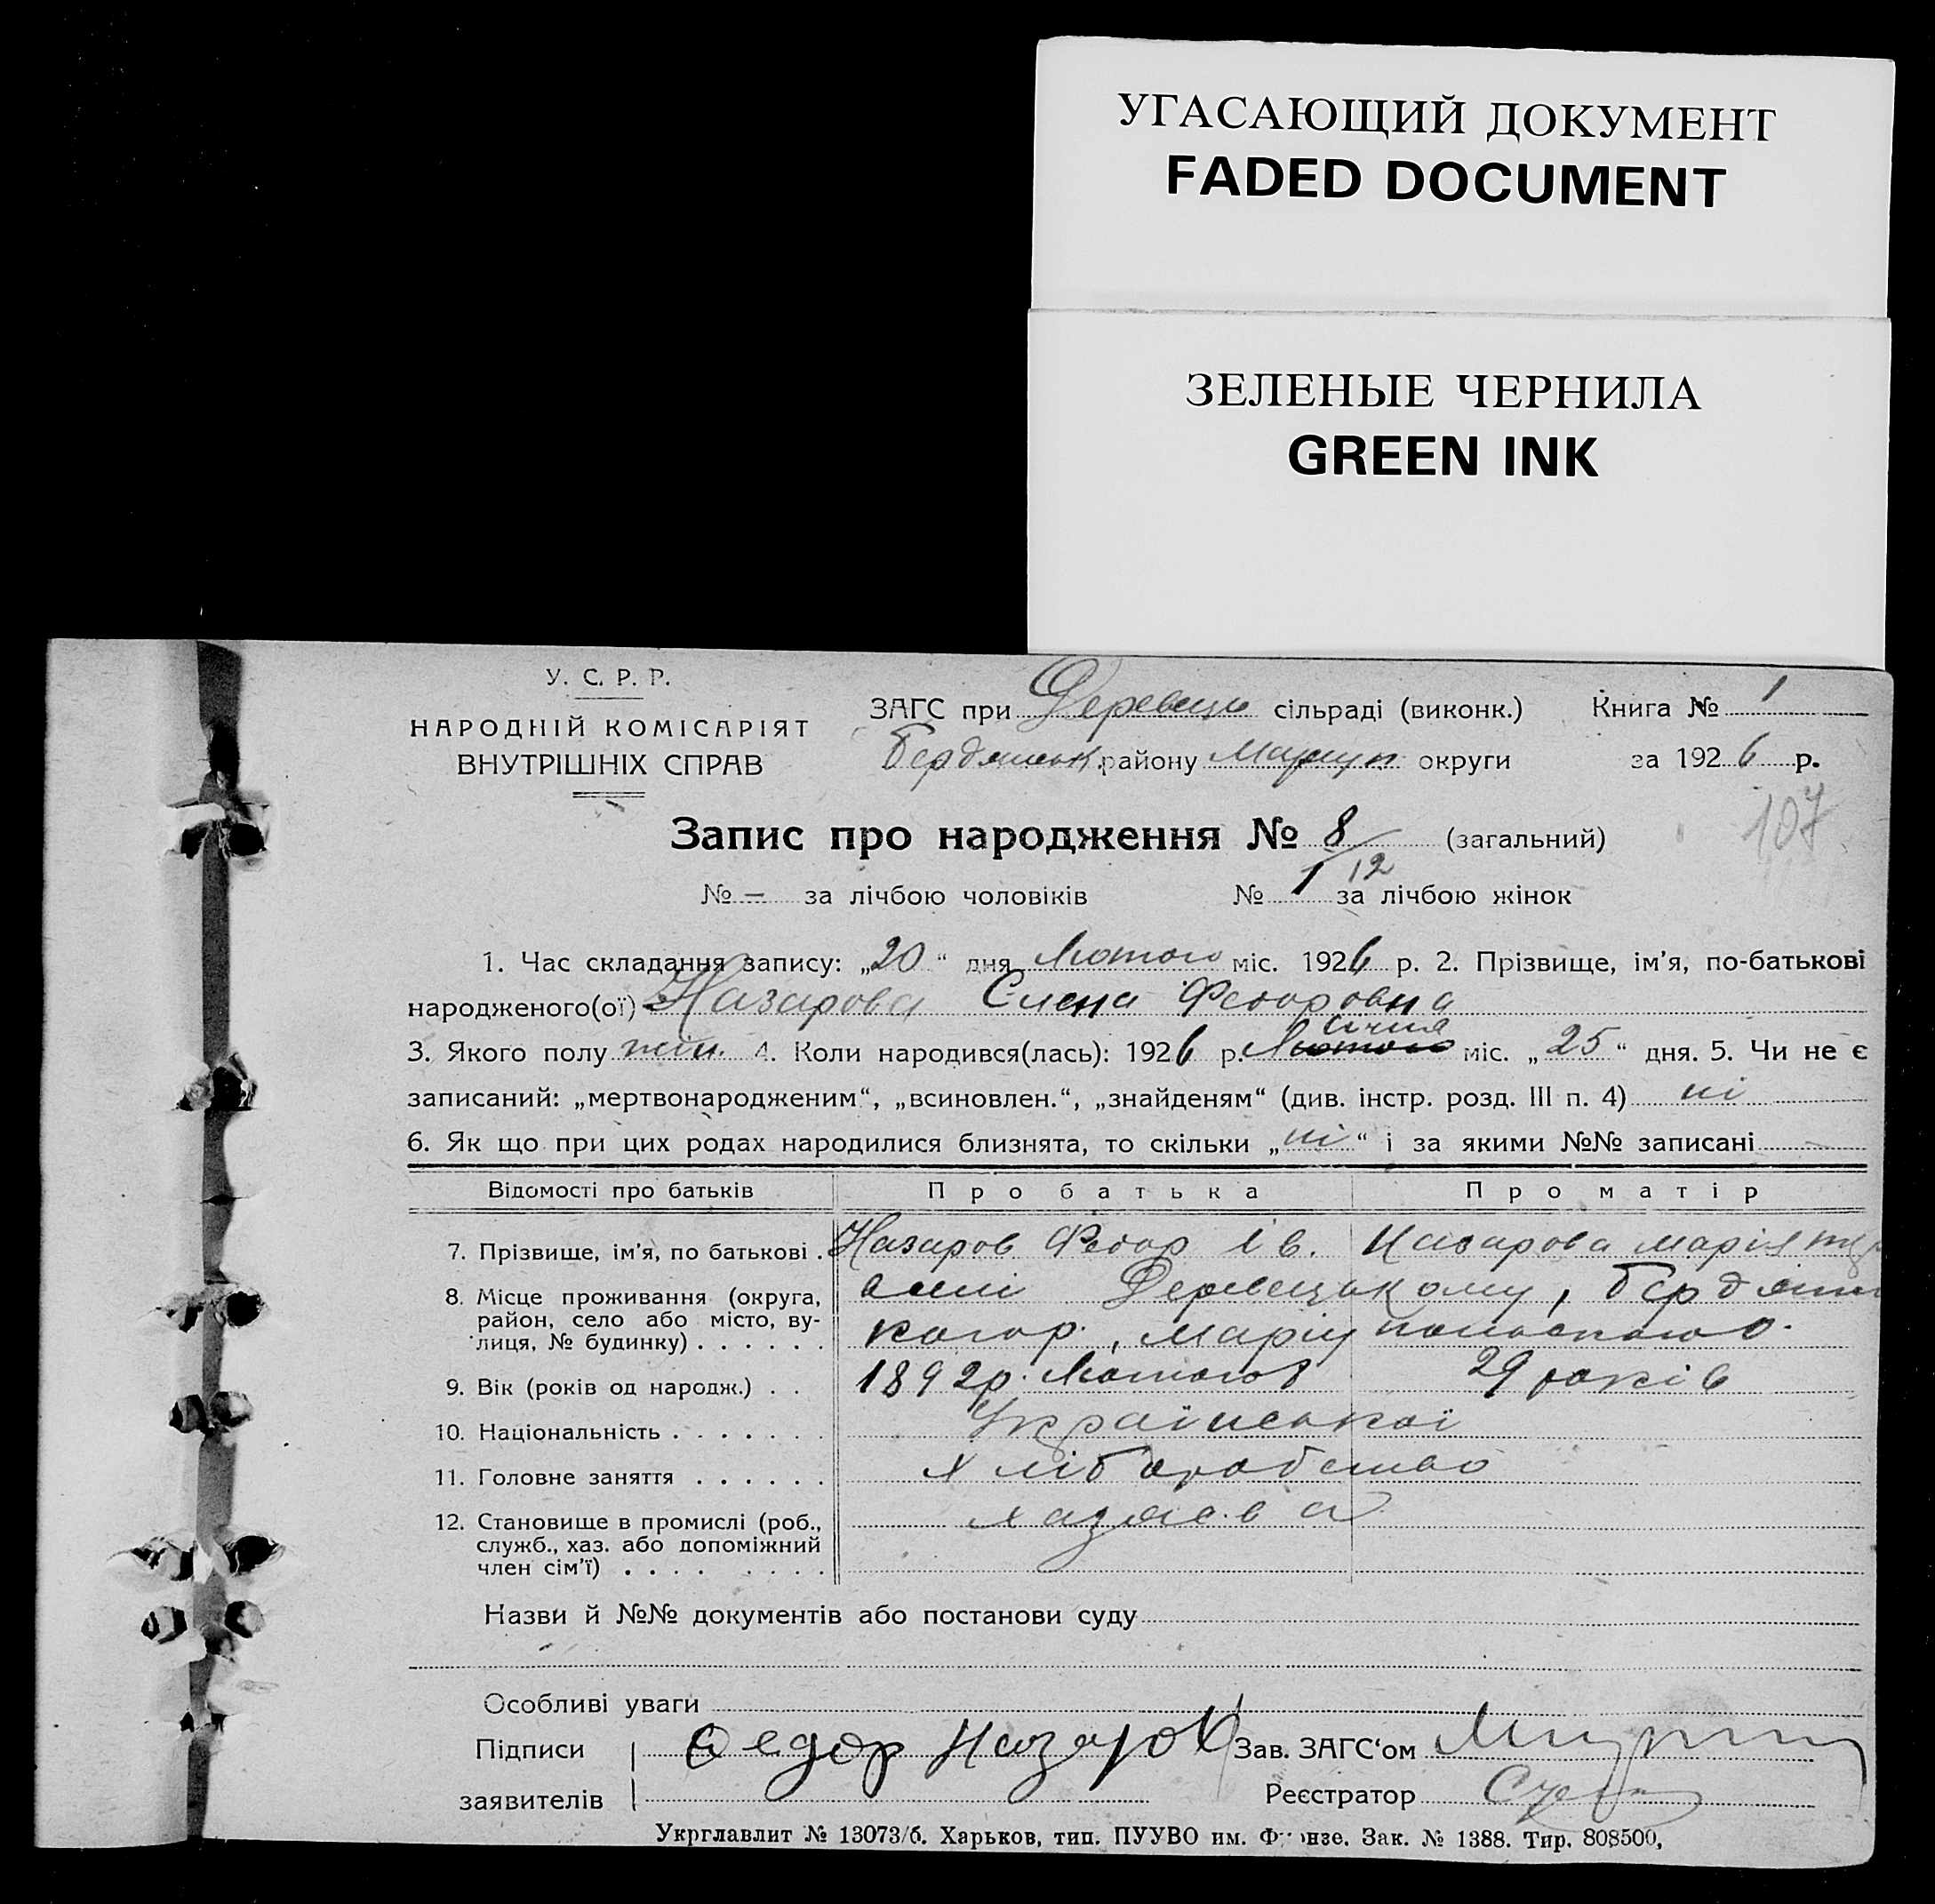 УГАСАЮЩИЙ ДОКУМЕНТ
FADED DOCUMENT
ЗЕЛЕНЫЕ ЧЕРНИЛА
GREEN INK
У. С. Р. Р.
НАРОДНІЙ КОМІСАРІЯТ
ВНУТРІШНІХ СПРАВ
ЗАГС при Деревецк сільраді (виконк.) Книга № 1
району Маріуп округи за 1926 р.
107
Запис про народження № 8 (загальний)
12
№ — за лічбою чоловіків № 1 за лічбою жінок
1. Час складання запису: „20“ дня Лютого міс. 1926 р. 2. Прізвище, ім’я, по-батькові
народженого(ої) Назарова Єлена Федоровна
січня
3. Якого полу жін. 4. Коли народився(лась): 1926 р. Лютого міс. „25“ дня. 5. Чи не є
записаний: „мертвонародженим“, „всиновлен.“, „знайденям“ (див. інстр. розд. III п. 4) ні
6. Як що при цих родах народилися близнята, то скільки „ні“ і за якими №№ записані
Відомості про батьків Про батька Про матір
7. Прізвище, ім’я, по батькові . Назаров Федор Ів. Назарова Марія
8. Місце проживання (округа, селі Деревецькому, Бердянс
район, село або місто, ву- кого р., Маріупольського о.
лиця, № будинку) . . . . . .
9. Вік (років од народж.) . . 1892 р. Лютого 29 років
10. Національність . . . . . . . Української
11. Головне заняття . . . . . . Хліборобство
12. Становище в промислі (роб.,
служб., хаз. або допоміжний
член сім’ї) . . . . . . . .
Назви й №№ документів або постанови суду
Особливі уваги
Підписи Федор Назаров Зав. ЗАГС‘ом
заявителів Реєстратор
Укрглавлит № 13073/б. Харьков, тип. ПУУВО им. Фрунзе. Зак. № 1388. Тир. 808500,